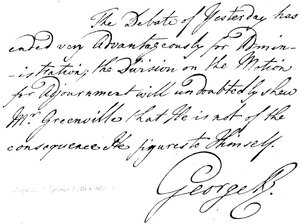 The Debate of Yesterday has
ended very Advantageously for Admin-
-istration; the Division on the Motion
for Adjournment will undoubtedly shew
Mr. Greenville that He is not of the
consequence He figures to Himself.
George R.